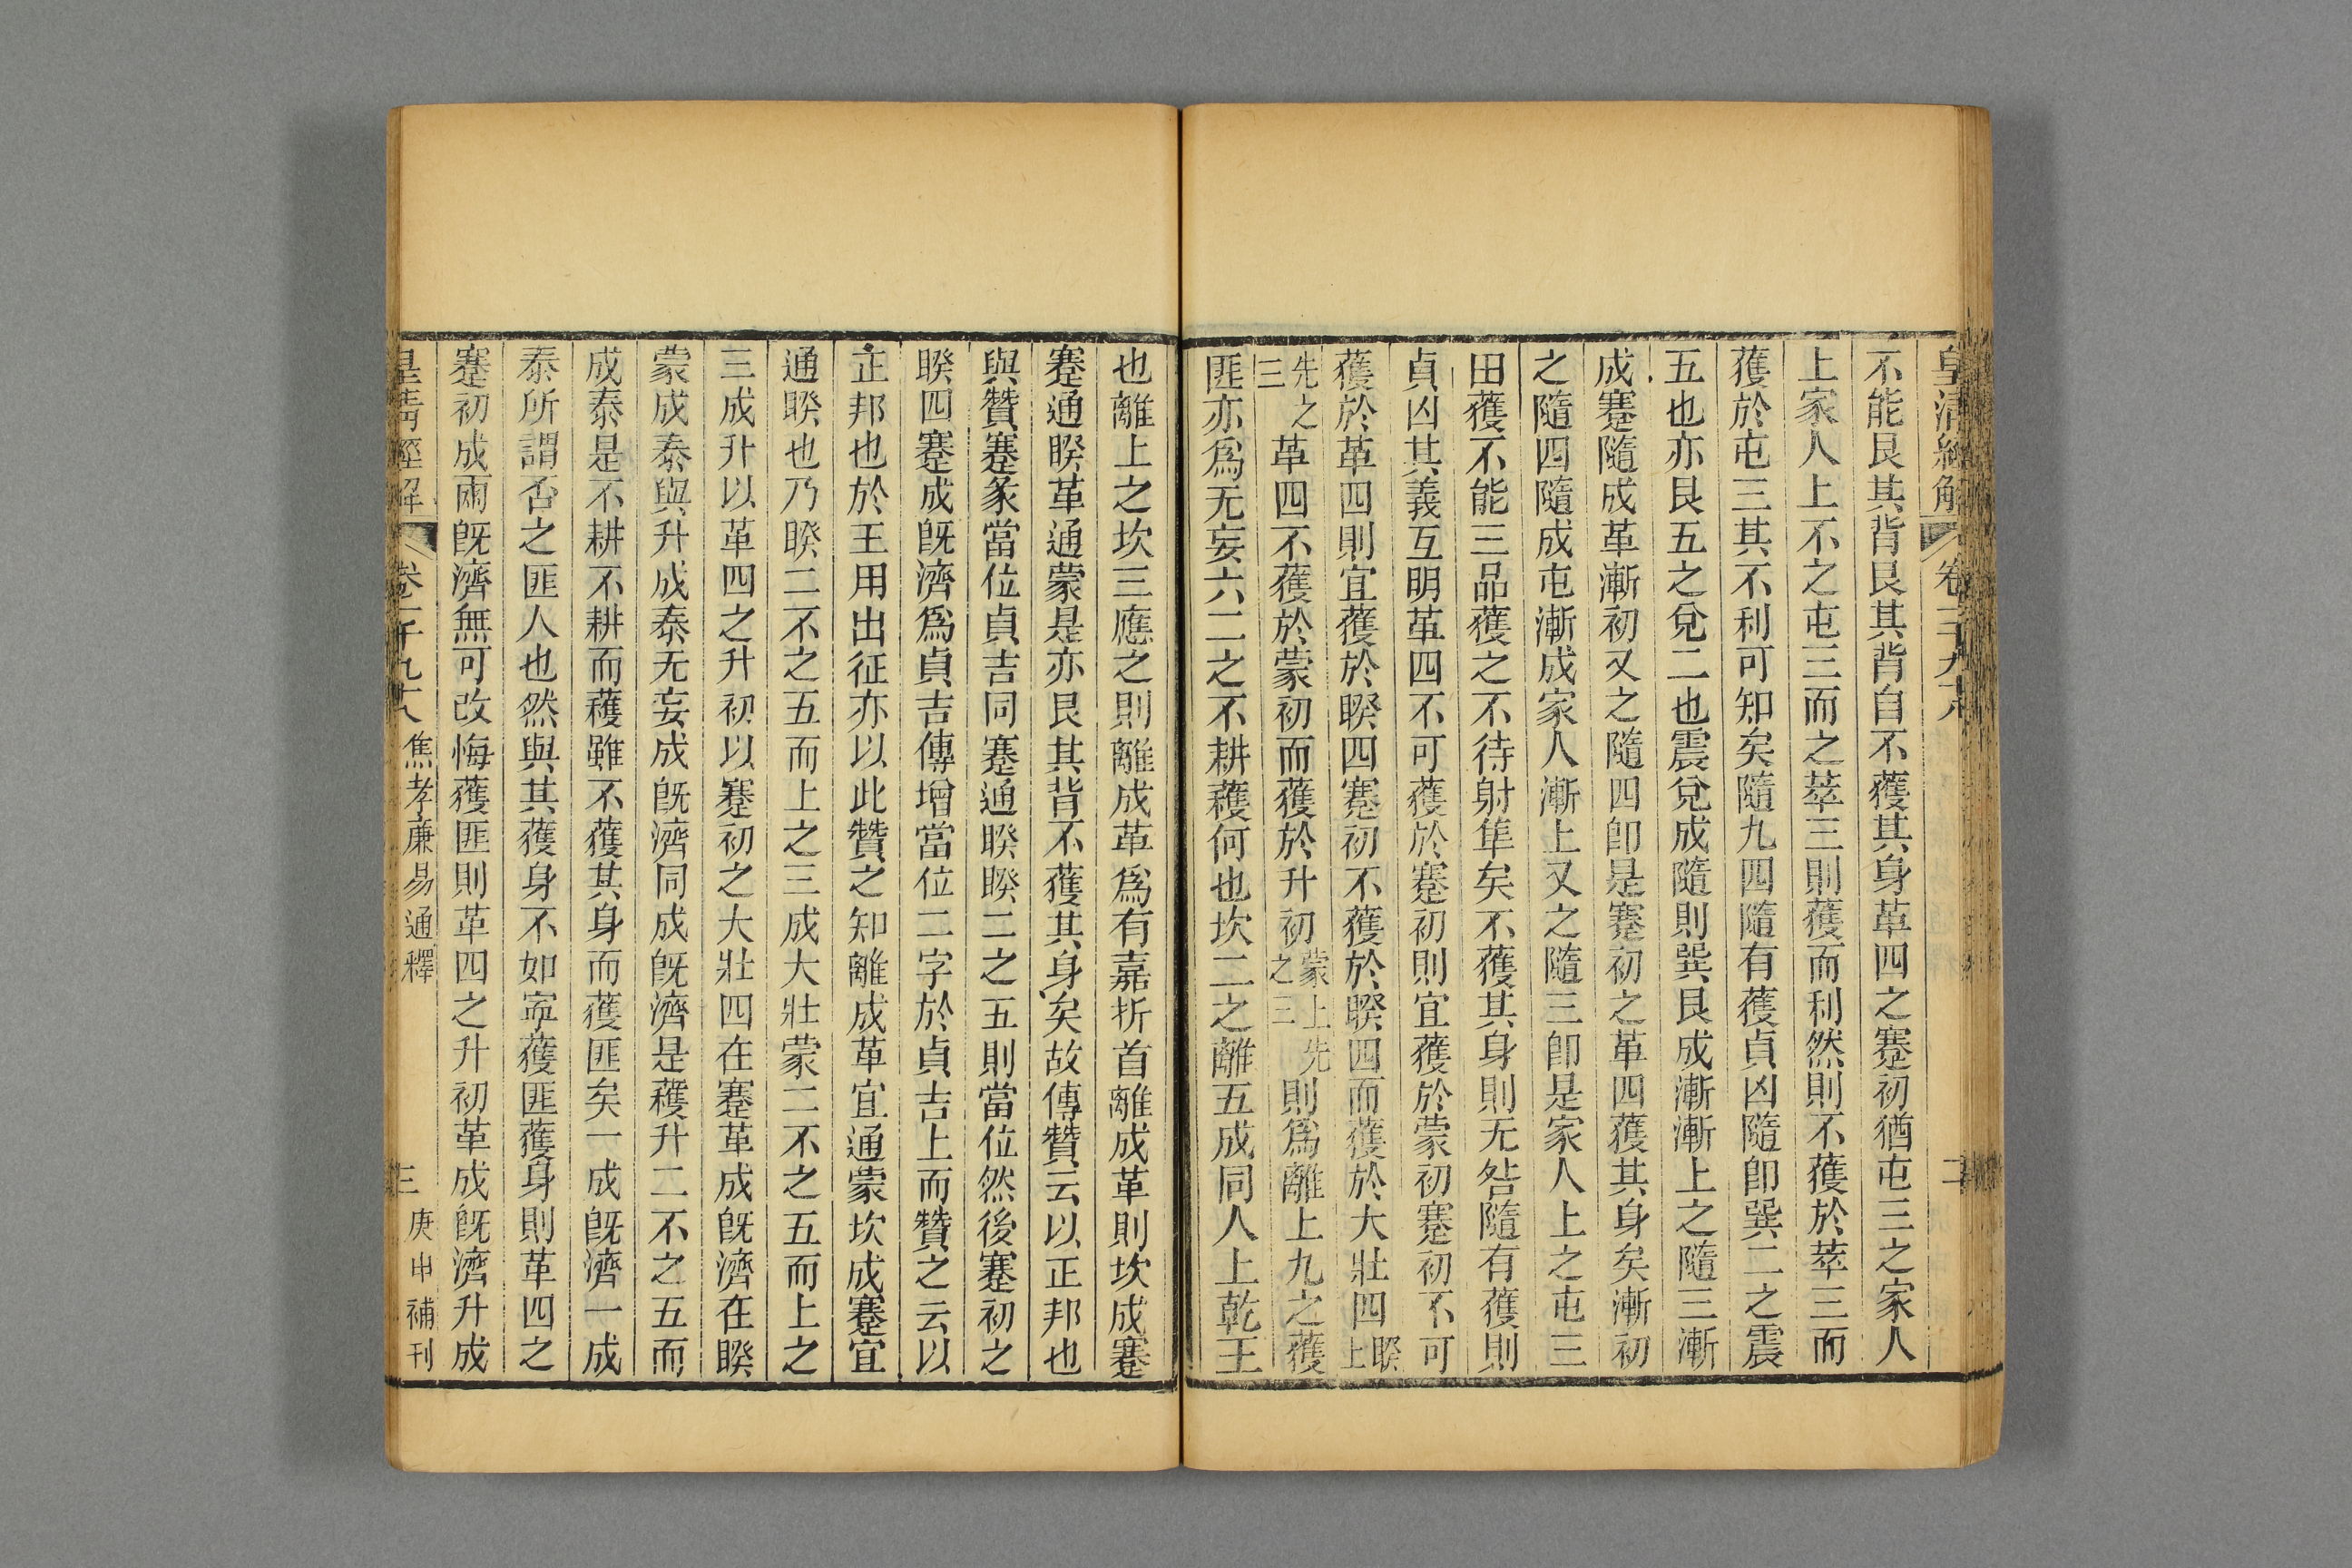 皇清經解 卷一千九十八 二
不能艮其背艮其背自不獲其身革四之蹇初猶屯三之家人
上家人上不之屯三而之萃三則獲而利然則不獲於萃三而
獲於屯三其不利可知矣隨九四隨有獲貞凶隨卽巽二之震
五也亦艮五之兌二也震兌成隨則巽艮成漸漸上之隨三漸
成蹇隨成革漸初又之隨四卽是蹇初之革四獲其身矣漸初
之隨四隨成屯漸成家人漸上又之隨三卽是家人上之屯三
田獲不能三品獲之不待射隼矣不獲其身則无咎隨有獲則
貞凶其義互明革四不可獲於蹇初則宜獲於蒙初蹇初不可
獲於革四則宜獲於睽四蹇初不獲於睽四而獲於大壯四睽上
先之三革四不獲於蒙初而獲於升初蒙上先之三則爲離上九之獲
匪亦爲无妄六二之不耕穫何也坎二之離五成同人上乾王
也離上之坎三應之則離成革爲有嘉折首離成革則坎成蹇
蹇通睽革通蒙是亦艮其背不獲其身矣故傳贊云以正邦也
與贊蹇彖當位貞吉同蹇通睽睽二之五則當位然後蹇初之
睽四蹇成旣濟爲貞吉傳增當位二字於貞吉上而贊之云以
正邦也於王用出征亦以此贊之知離成革宜通蒙坎成蹇宜
通睽也乃睽二不之五而上之三成大壯蒙二不之五而上之
三成升以革四之升初以蹇初之大壯四在蹇革成旣濟在睽
蒙成泰與升成泰无妄成旣濟同成旣濟是穫升二不之五而
成泰是不耕不耕而穫雖不獲其身而獲匪矣一成旣濟一成
泰所謂否之匪人也然與其獲身不如寧獲匪獲身則革四之
蹇初成兩旣濟無可改悔獲匪則革四之升初革成旣濟升成
皇清經解 卷一千九十八 焦孝廉易通釋 三 庚申補刊